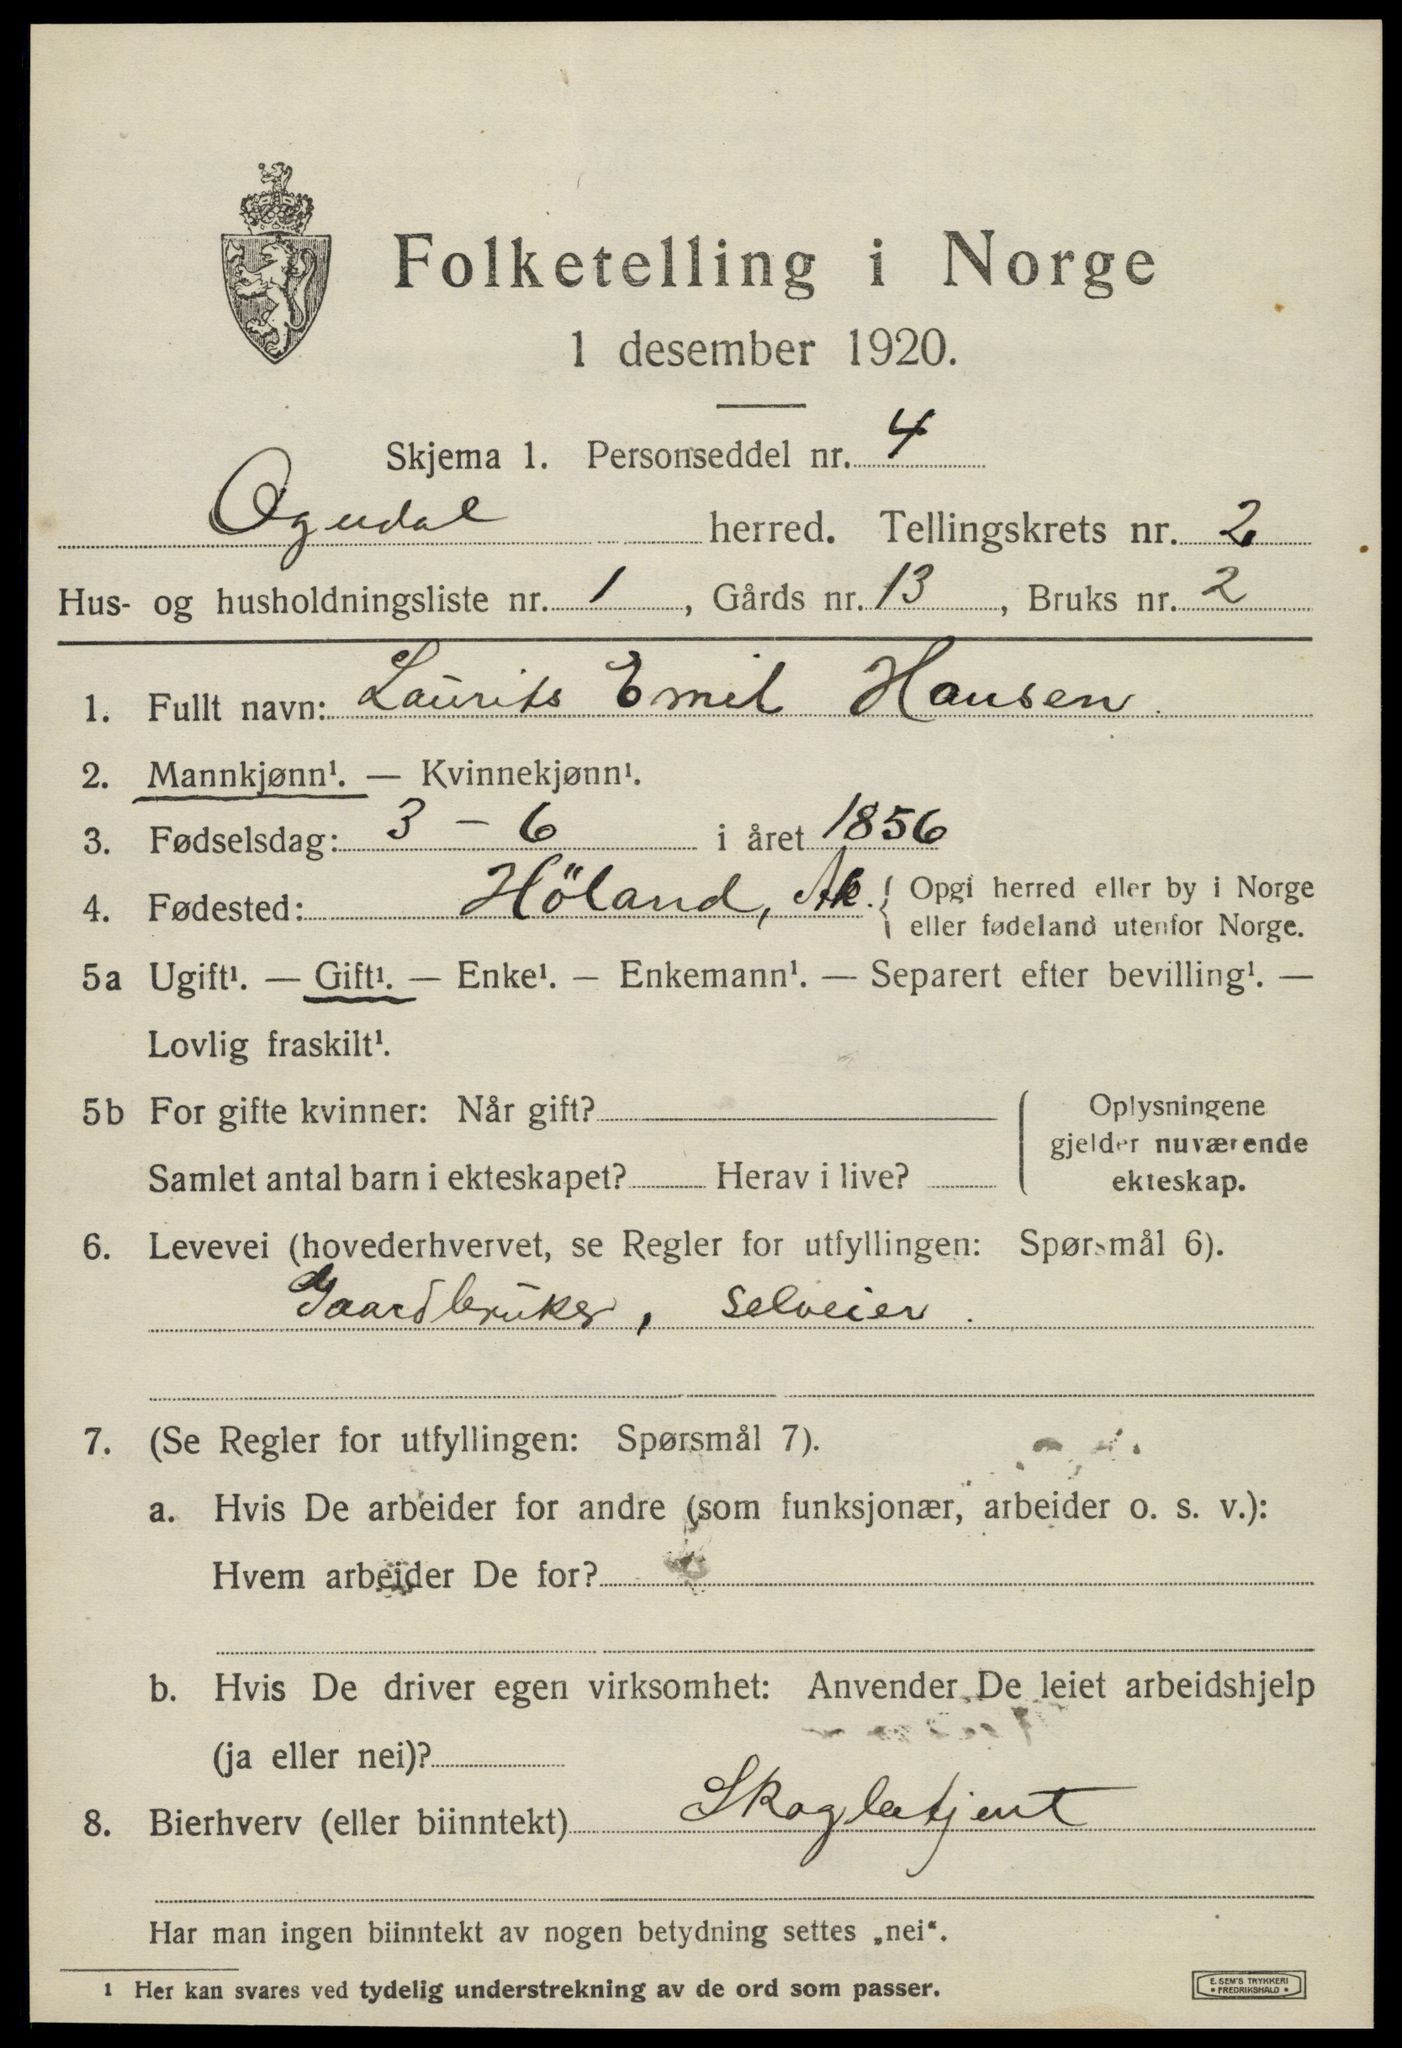 Folketelling i Norge
1 desember 1920.
Skjema 1. Personseddel nr. 4
Ogndal herred. Tellingskrets nr. 2
Hus- og husholdningsliste nr. 1, Gårds nr. 13, Bruks nr. 2
1. Fullt navn: Laurits Emil Hansen.
2. Mannkjønn¹. — Kvinnekjønn¹.
3. Fødselsdag: 3 – 6 i året 1856
4. Fødested: Höland, Ak. { Opgi herred eller by i Norge
eller fødeland utenfor Norge.
5a Ugift¹. — Gift¹. — Enke¹. — Enkemann¹. — Separert efter bevilling¹. —
Lovlig fraskilt¹.
5b For gifte kvinner: Når gift?
Samlet antal barn i ekteskapet? Herav i live?
Oplysningene
gjelder nuværende
ekteskap.
6. Levevei (hovederhvervet, se Regler for utfyllingen: Spørsmål 6).
Gaardbruker, selveier.
7. (Se Regler for utfyllingen: Spørsmål 7).
a. Hvis De arbeider for andre (som funksjonær, arbeider o. s. v.):
Hvem arbeider De for?
b. Hvis De driver egen virksomhet: Anvender De leiet arbeidshjelp
(ja eller nei)?
8. Bierhverv (eller biinntekt) Skogbetjent
Har man ingen biinntekt av nogen betydning settes „nei“.
1 Her kan svares ved tydelig understrekning av de ord som passer.
E. SEM'S TRYKKERI
• FREDRIKSHALD •